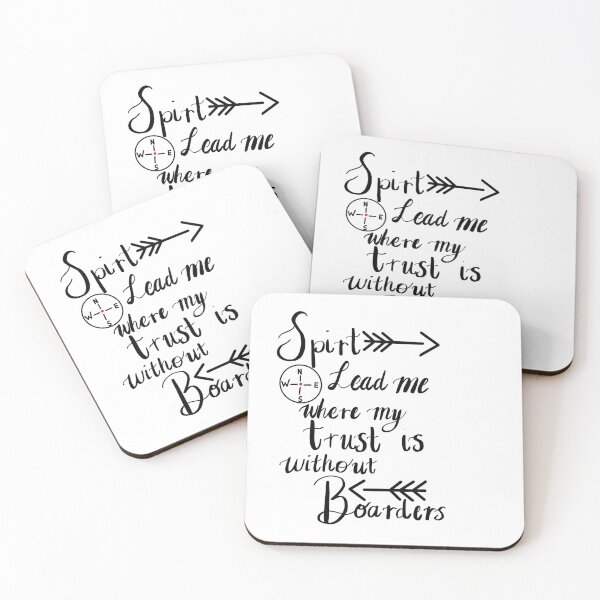 Spirt
N
W E Lead me
S
where
Spirt
N
W E Lead me
S
where my
trust is
without
Spirt
N
W E Lead me
S
where my
trust is
without
Spirt
N
W E Lead me
S
where my
trust is
without
Boarders